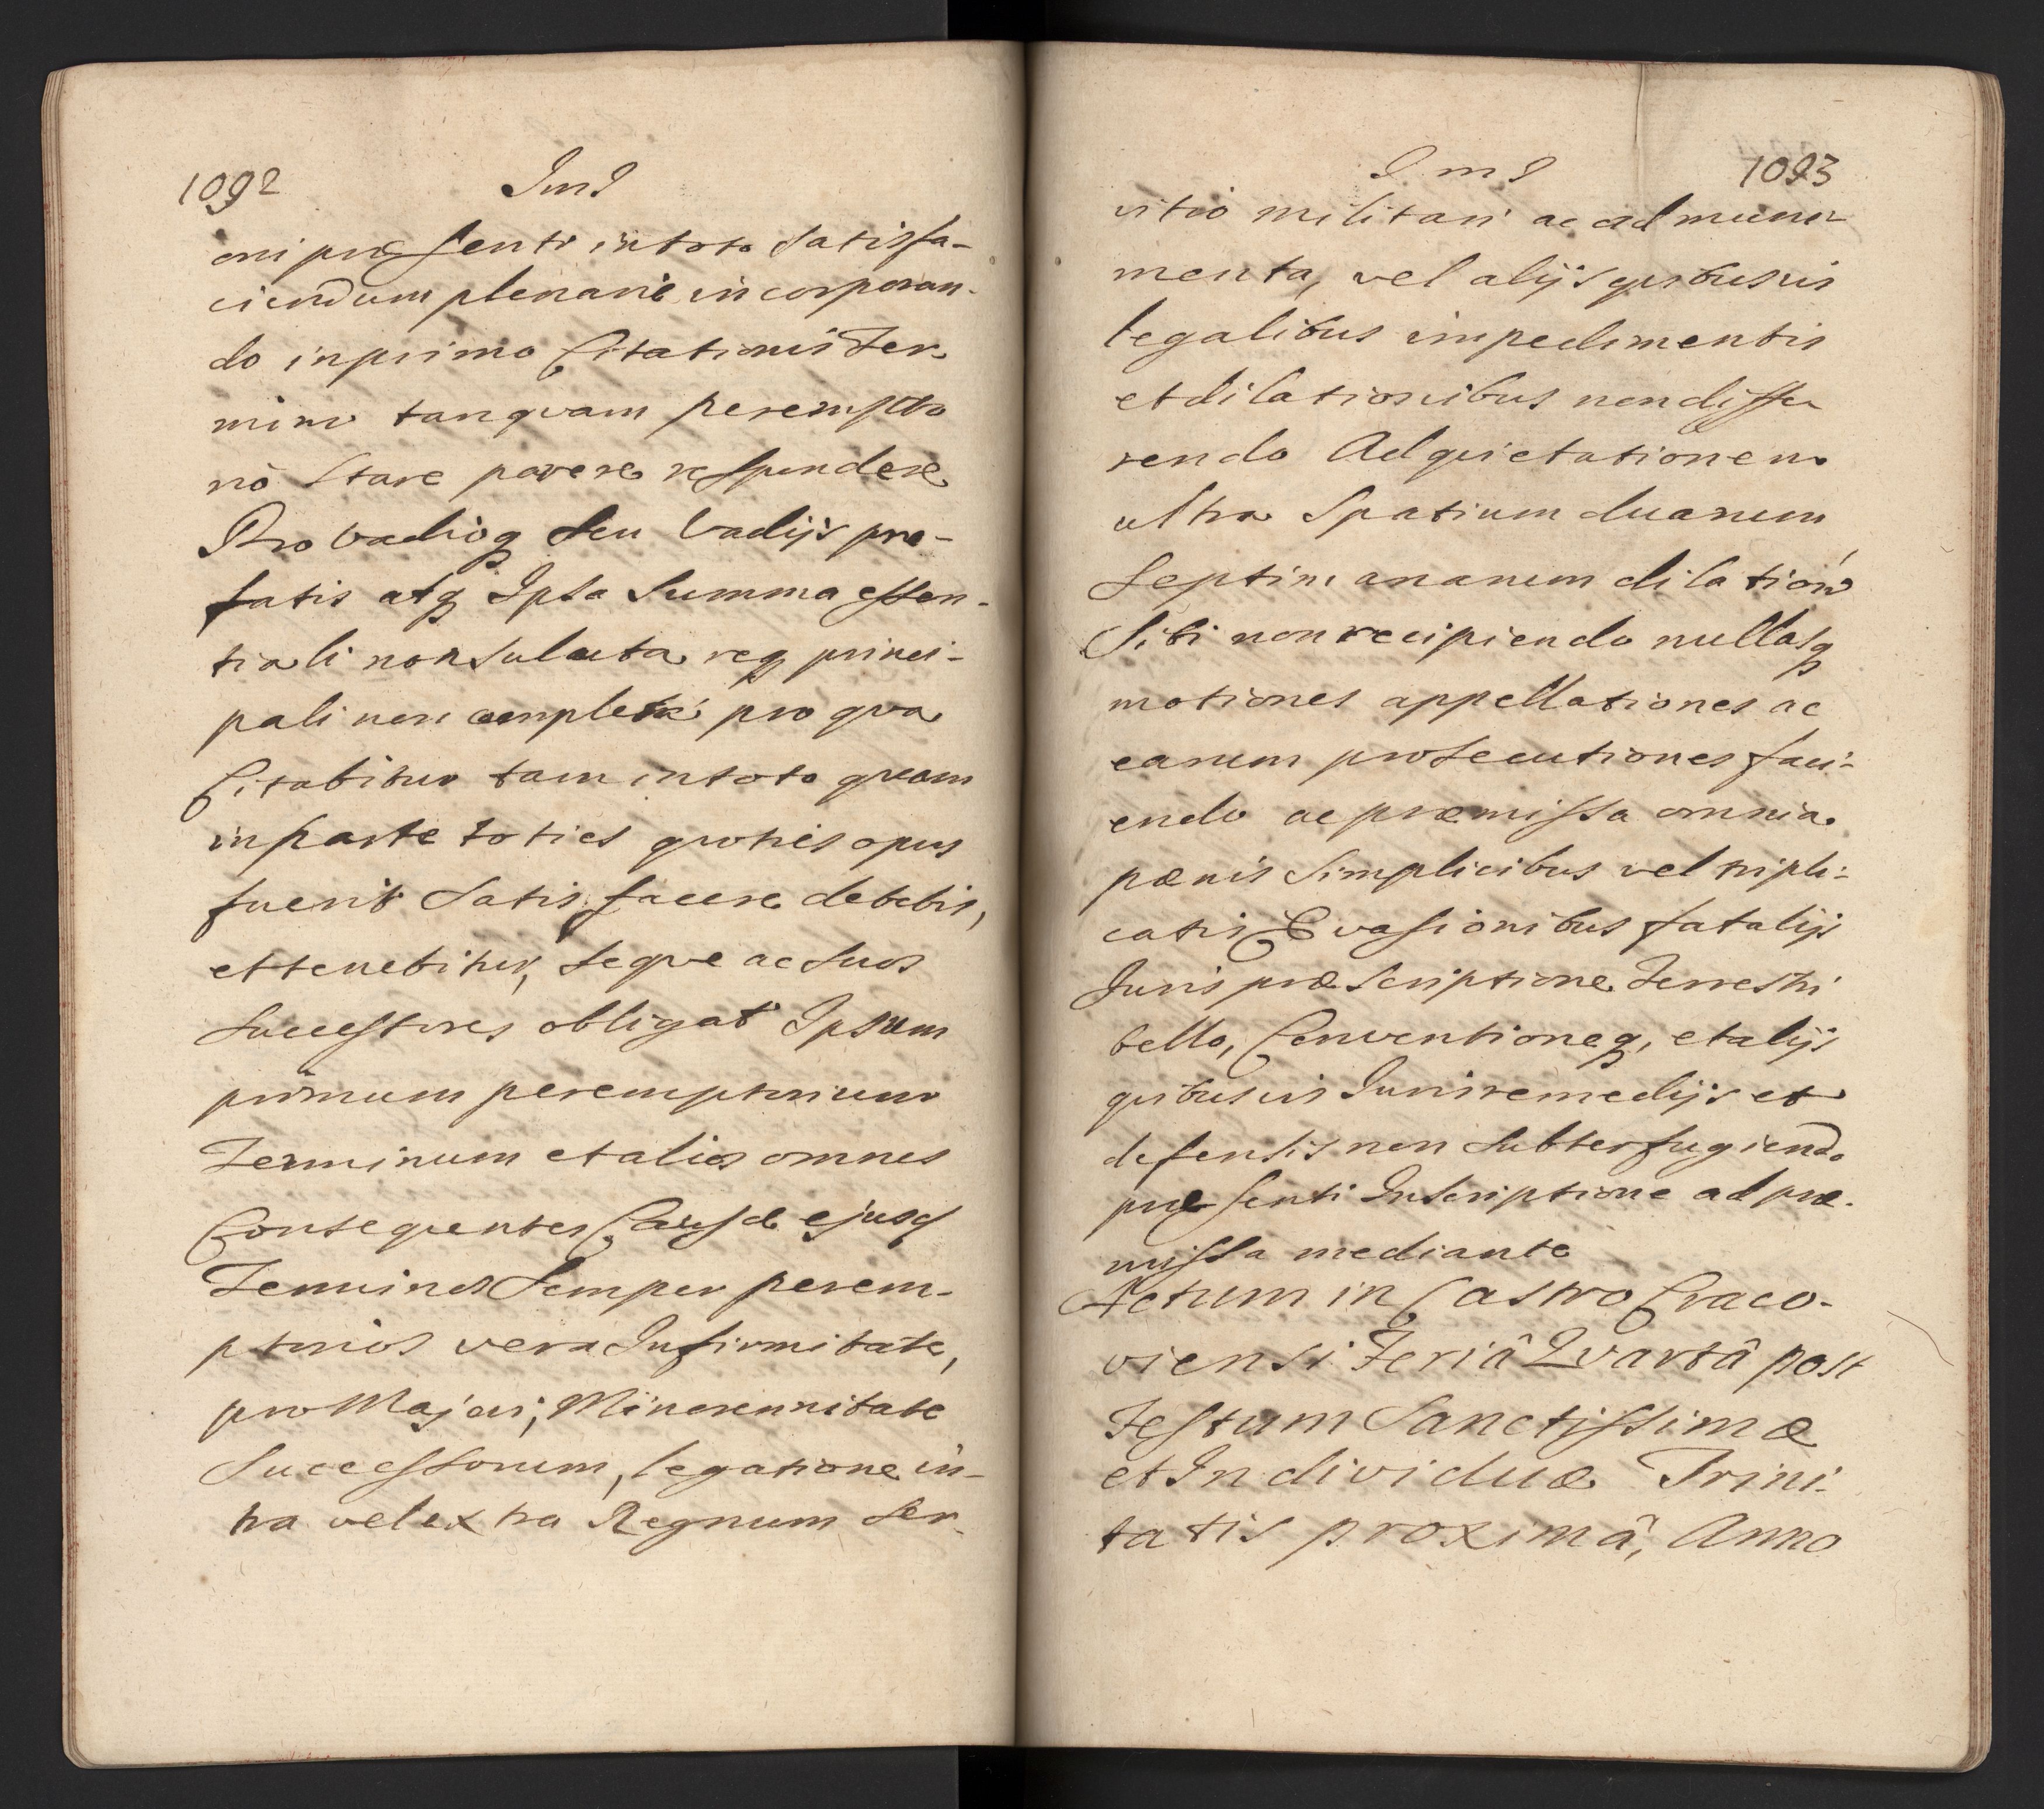 1092
JmJ
oni præsenti in toto satisfa-
ciendum plenarie incorporan-
do in primo Citationis Ter
mino tanqvam perempto
rió stare parere respondere
Pro vadioq seu Vadijs præ-
fatis atq Ipsa Summa essen-
tiali non soluta req princi-
pali non completa pro qva
Citabitur tam in toto quam
in parte toties quoties opus
fuerit Satis facere debebit,
et tenebitur, seqve ac suos
Successores obligat Ipsum
primum peremptorium
Terminum et alios omnes
Consequenter Causæ ejusq
Terminos Semper perem-
ptorios vera Infirmitate,
pro Majori, Minorennitate
Successorum, legatione in-
tra vel extra Regnum Ser-
J m J
1093
vitio militari ac ad muni-
menta, vel alijs quibusvis
legalibus impedimentis
et dilationibus non diffe
rendo Ad quietationem
ultra Spatium duarum
Septimanarum dilation
Sibi non recipiendo nullasq
motiones appellationes ac
earum prosecutiones faci-
endo ac præmissa omnia
pænis Simplicibus vel tripli-
catis Evasionibus fatalijs
Juris præscriptione Terrestri
bello, Conventioneq, et alijs
quibusvis Juris remedijs et
defensis non subterfugiendo
præsenti Inscriptione ad præ-
missa mediante
Actum in Castro Craco-
viensi Feriâ Qvartâ post
Festum Sanctissimæ
et Individuæ Trini-
tatis proximâ, Anno